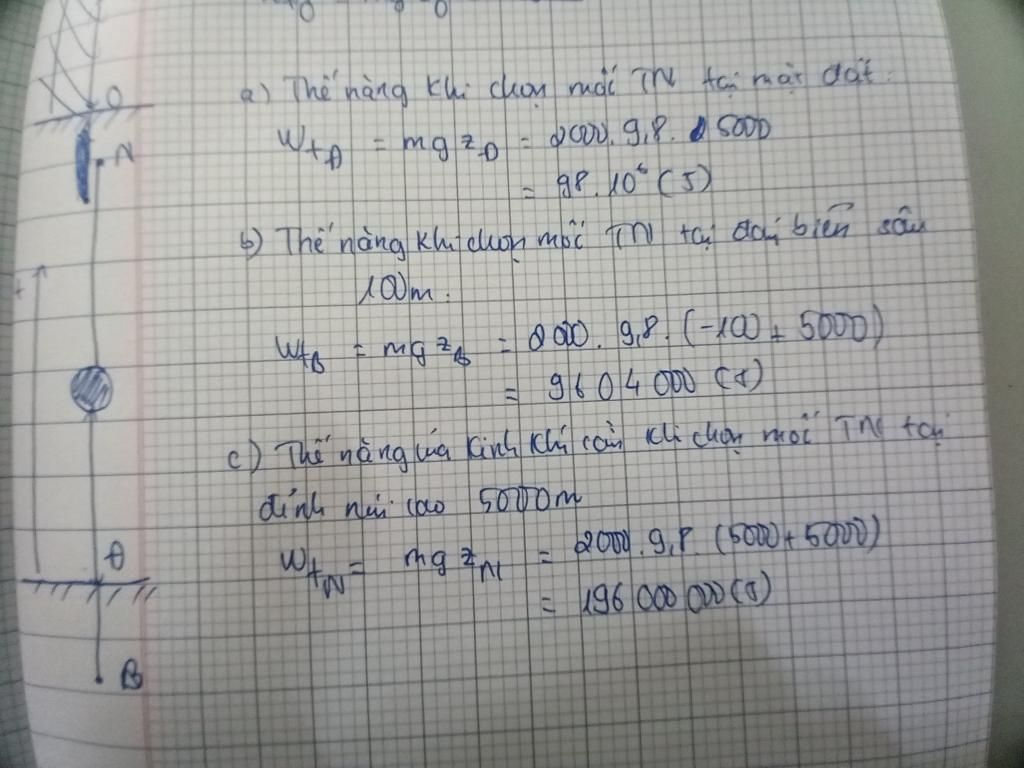 O
N
+
O
B
a) Thế năng khi chọn mốc TN tại mặt đất.
WtO = mgzO = 2000. 9,8. 5000
= 98.10⁶ (J)
b) Thế năng khi chọn mốc TN tại đáy biển sâu
100m.
WtB = mgzB = 200. 9,8. (-100 + 5000)
= 9604000 (J)
c) Thế năng của kinh khí cầu khi chọn mốc TN tại
đỉnh núi cao 5000m
WtN = mgzN = 2000. 9,8. (5000 + 5000)
= 196000000 (J)